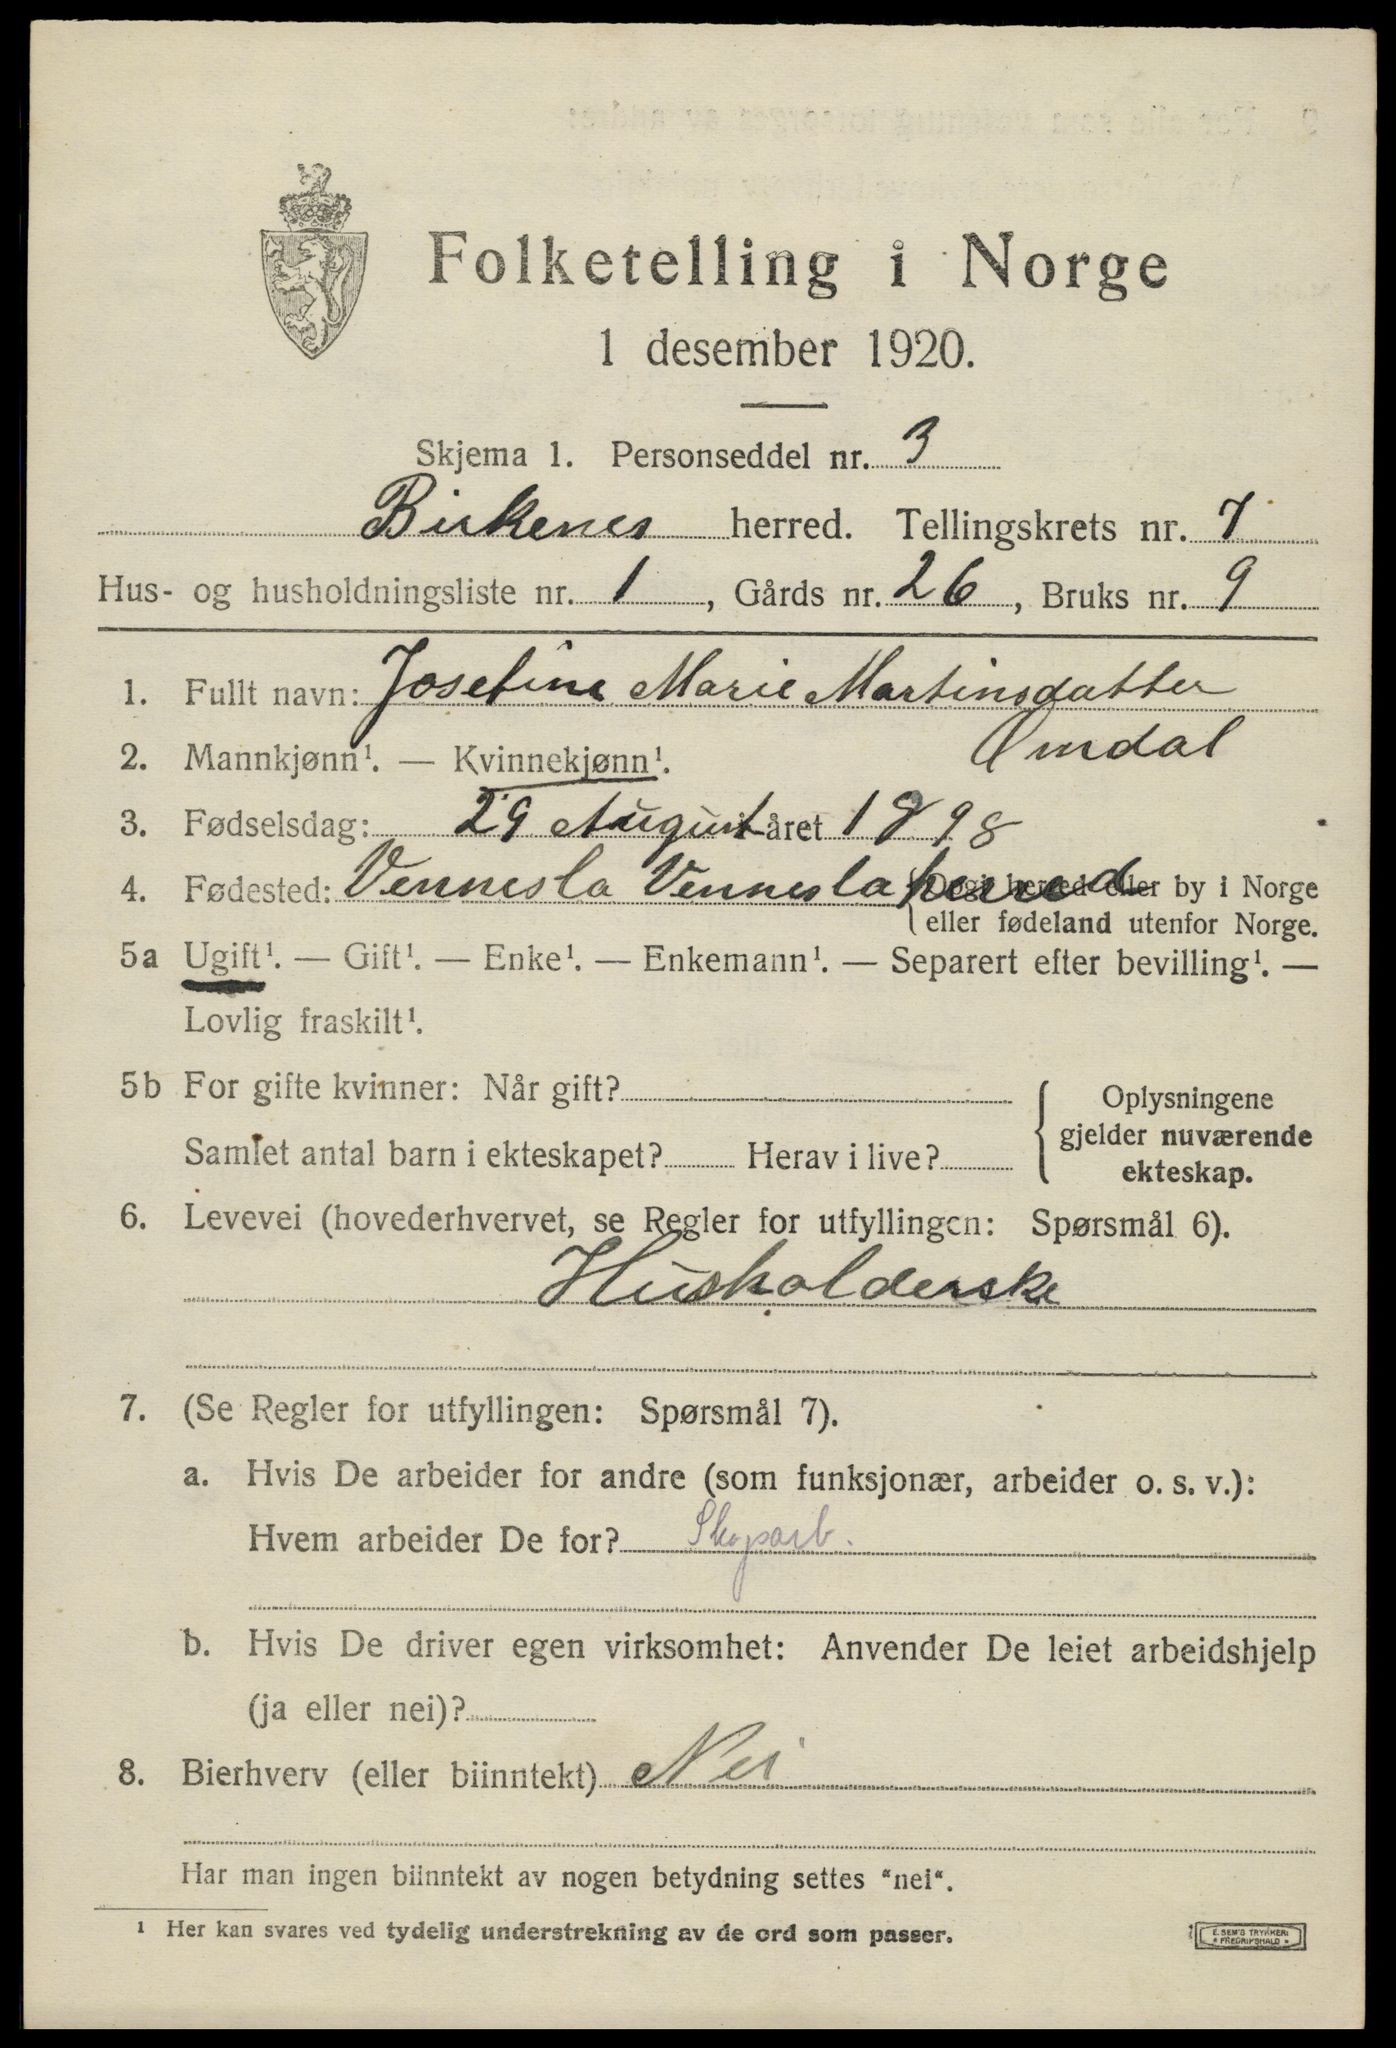 Folketelling i Norge
1 desember 1920.
Skjema 1. Personseddel nr. 3
Birkenes herred. Tellingskrets nr. 7
Hus- og husholdningsliste nr. 1, Gårds nr. 26, Bruks nr. 9
1. Fullt navn: Josefine Marie Martinsdatter
Omdal
2. Mannkjønn¹. — Kvinnekjønn¹.
3. Fødselsdag: 29 August året 1898
4. Fødested: Vennesla Vennesla herred {Opgi herred eller by i Norge
eller fødeland utenfor Norge.
5a Ugift¹. — Gift¹. — Enke¹. — Enkemann¹. — Separert efter bevilling¹. —
Lovlig fraskilt¹.
5b For gifte kvinner: Når gift?
Samlet antal barn i ekteskapet? Herav i live?
Oplysningene
gjelder nuværende
ekteskap.
6. Levevei (hovederhvervet, se Regler for utfyllingen: Spørsmål 6).
Husholderske
7. (Se Regler for utfyllingen: Spørsmål 7).
a. Hvis De arbeider for andre (som funksjonær, arbeider o. s. v.):
Hvem arbeider De for? Skogsarb.
b. Hvis De driver egen virksomhet: Anvender De leiet arbeidshjelp
(ja eller nei)?
8. Bierhverv (eller biinntekt) Nei
Har man ingen biinntekt av nogen betydning settes "nei".
¹ Her kan svares ved tydelig understrekning av de ord som passer.
E. SEM'S TRYKKERI
* FREDRIKSHALD *